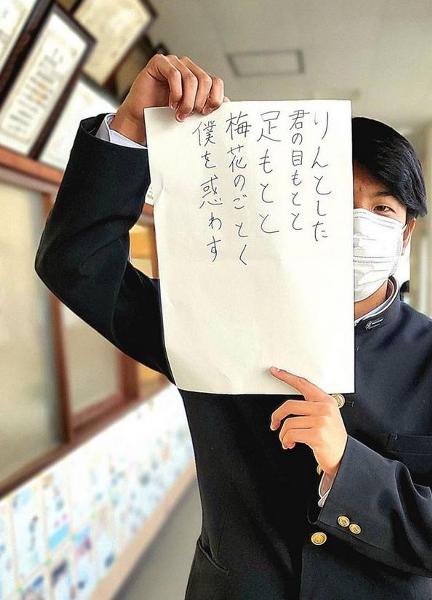 りんとした
君の目もとと
足もとと
梅花のごとく
僕を惑わす